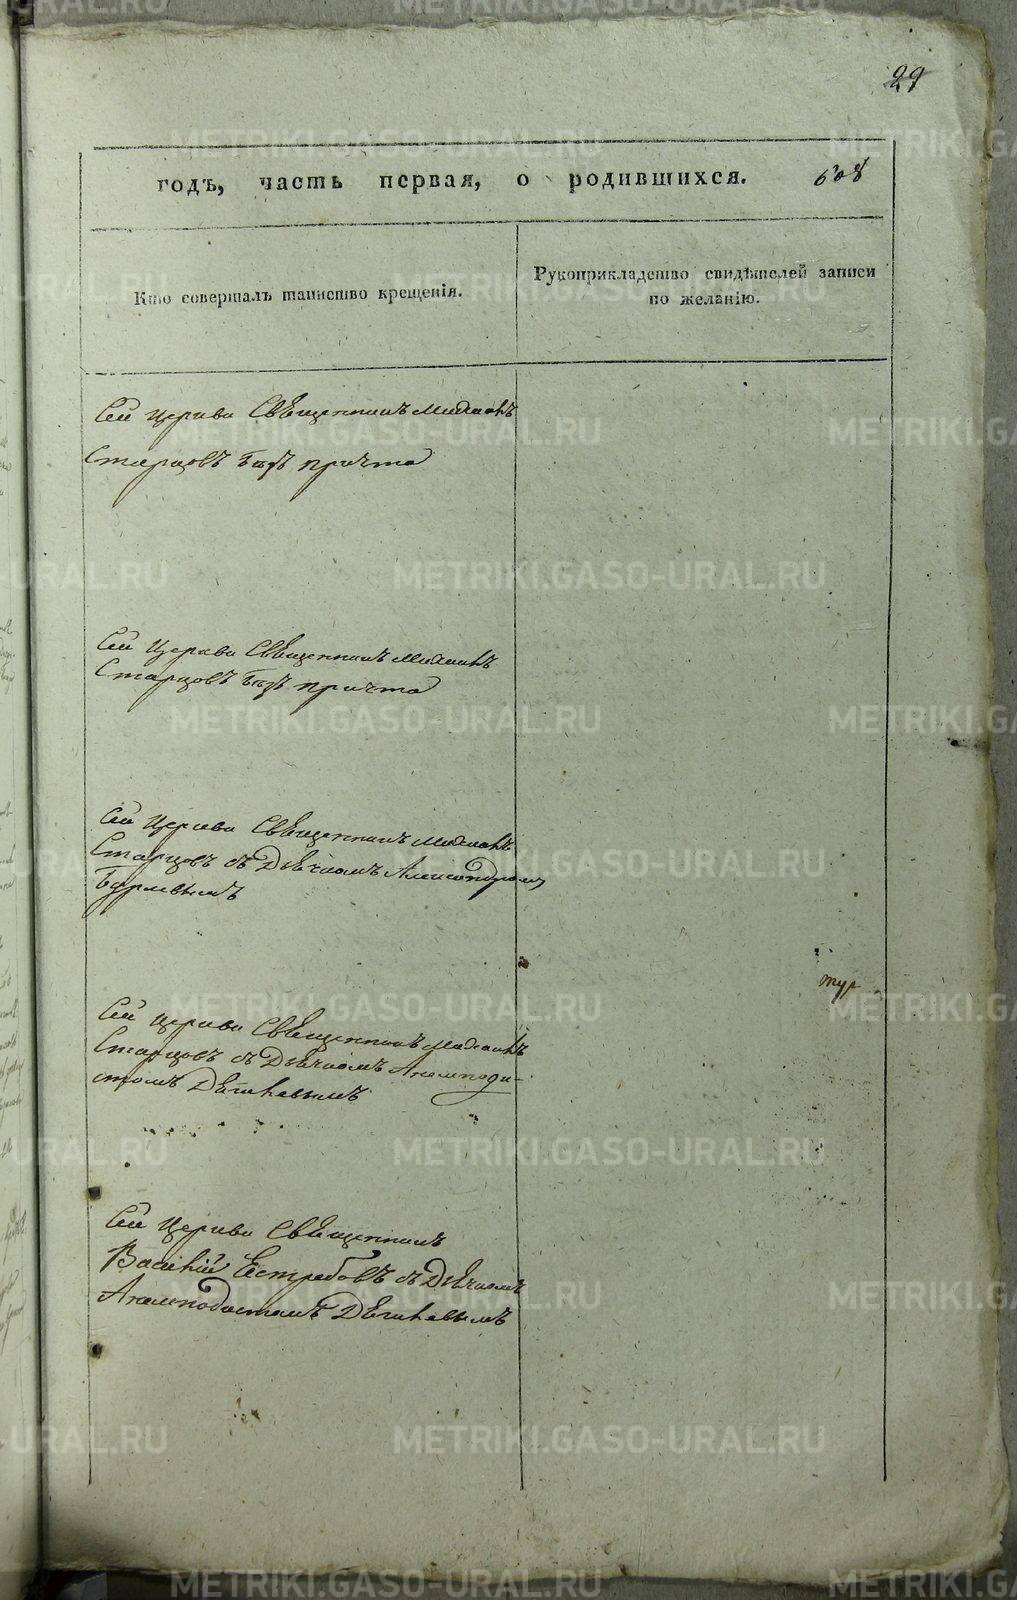 29
годъ, часть первая, о родившихся. 608
Кто совершалъ таинство крещенія.
Рукоприкладство свидѣтелей записи
по желанію.
Сей Церкви Священникъ Михаилъ
Старцовъ безъ причта
Сей Церкви Священникъ Михаилъ
Старцовъ безъ причта
Сей Церкви Священникъ Михаилъ
Старцовъ съ Дьячкомъ Александромъ
Сей Церкви Священникъ Михаилъ
Старцовъ съ Дьячкомъ Анемподи-
стомъ Дѣгилевымъ
Сей Церкви Священникъ
Василій Ястребовъ съ Дьячкомъ
Анемподистомъ Дѣгилевымъ
METRIKI.GASO-URAL.RU